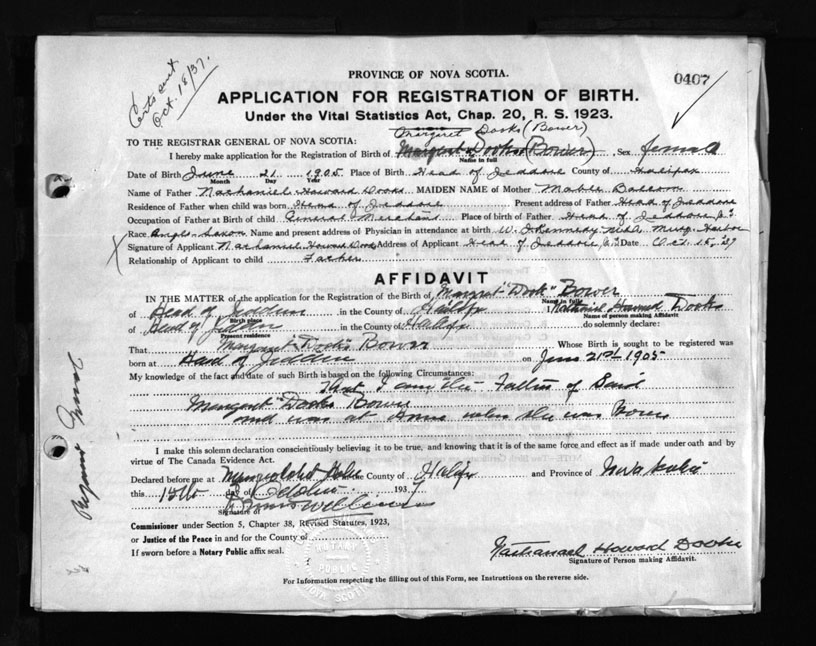 Oct. 18/37.
PROVINCE OF NOVA SCOTIA.
0407
APPLICATION FOR REGISTRATION OF BIRTH.
Under the Vital Statistics Act, Chap. 20, R. S. 1923.
Margaret Dooks (Bower)
TO THE REGISTRAR GENERAL OF NOVA SCOTIA:
I hereby make application for the Registration of Birth of Margaret Dooks (Bower) Sex female
Name in full
Date of Birth June 21 1905 Place of Birth Head of Jeddore County of Halifax
Month Day Year
Name of Father Nathaniel Howard Dooks MAIDEN NAME of Mother Mable
Residence of Father when child was born Head of Jeddore Present address of Father Head of Jeddore
Occupation of Father at Birth of child General Merchant Place of birth of Father Head of Jeddore
Race Anglo-Saxon Name and present address of Physician in attendance at birth W. D. Kennedy Musq. Harbor
X Signature of Applicant Nathaniel Howard Dooks Address of Applicant Head of Jeddore Date Oct. 15 '37
Relationship of Applicant to child Father
AFFIDAVIT
IN THE MATTER of the application for the Registration of the Birth of Margaret "Dook" Bower
Name in full
of Head of Jeddore in the County of Halifx I Nathaniel Howard Dooks
Birth place Name of person making Affidavit
of Head of Jeddore in the County of Halifx do solemnly declare:
Present residence
That Margaret "Dooks Bower Whose Birth is sought to be registered was
born at Head of Jeddore on June 21st 1905
My knowledge of the fact and date of such Birth is based on the following Circumstances:
That I am the Father of Said
Margaret "Dooks Bower
and was at Home when she was Born
I make this solemn declaration conscientiously believing it to be true, and knowing that it is of the same force and effect as if made under oath and by
virtue of The Canada Evidence Act.
Declared before me at in the County of Halifx and Province of Nova Scotia
this 15th day of October 1937
Signature of
Commissioner under Section 5, Chapter 38, Revised Statutes, 1923,
or Justice of the Peace in and for the County of
If sworn before a Notary Public affix seal.
NOTARY PUBLIC NOVA SCOTIA
Nathaniel Howard Dooks
Signature of Person making Affidavit.
For Information respecting the filling out of this Form, see Instructions on the reverse side.